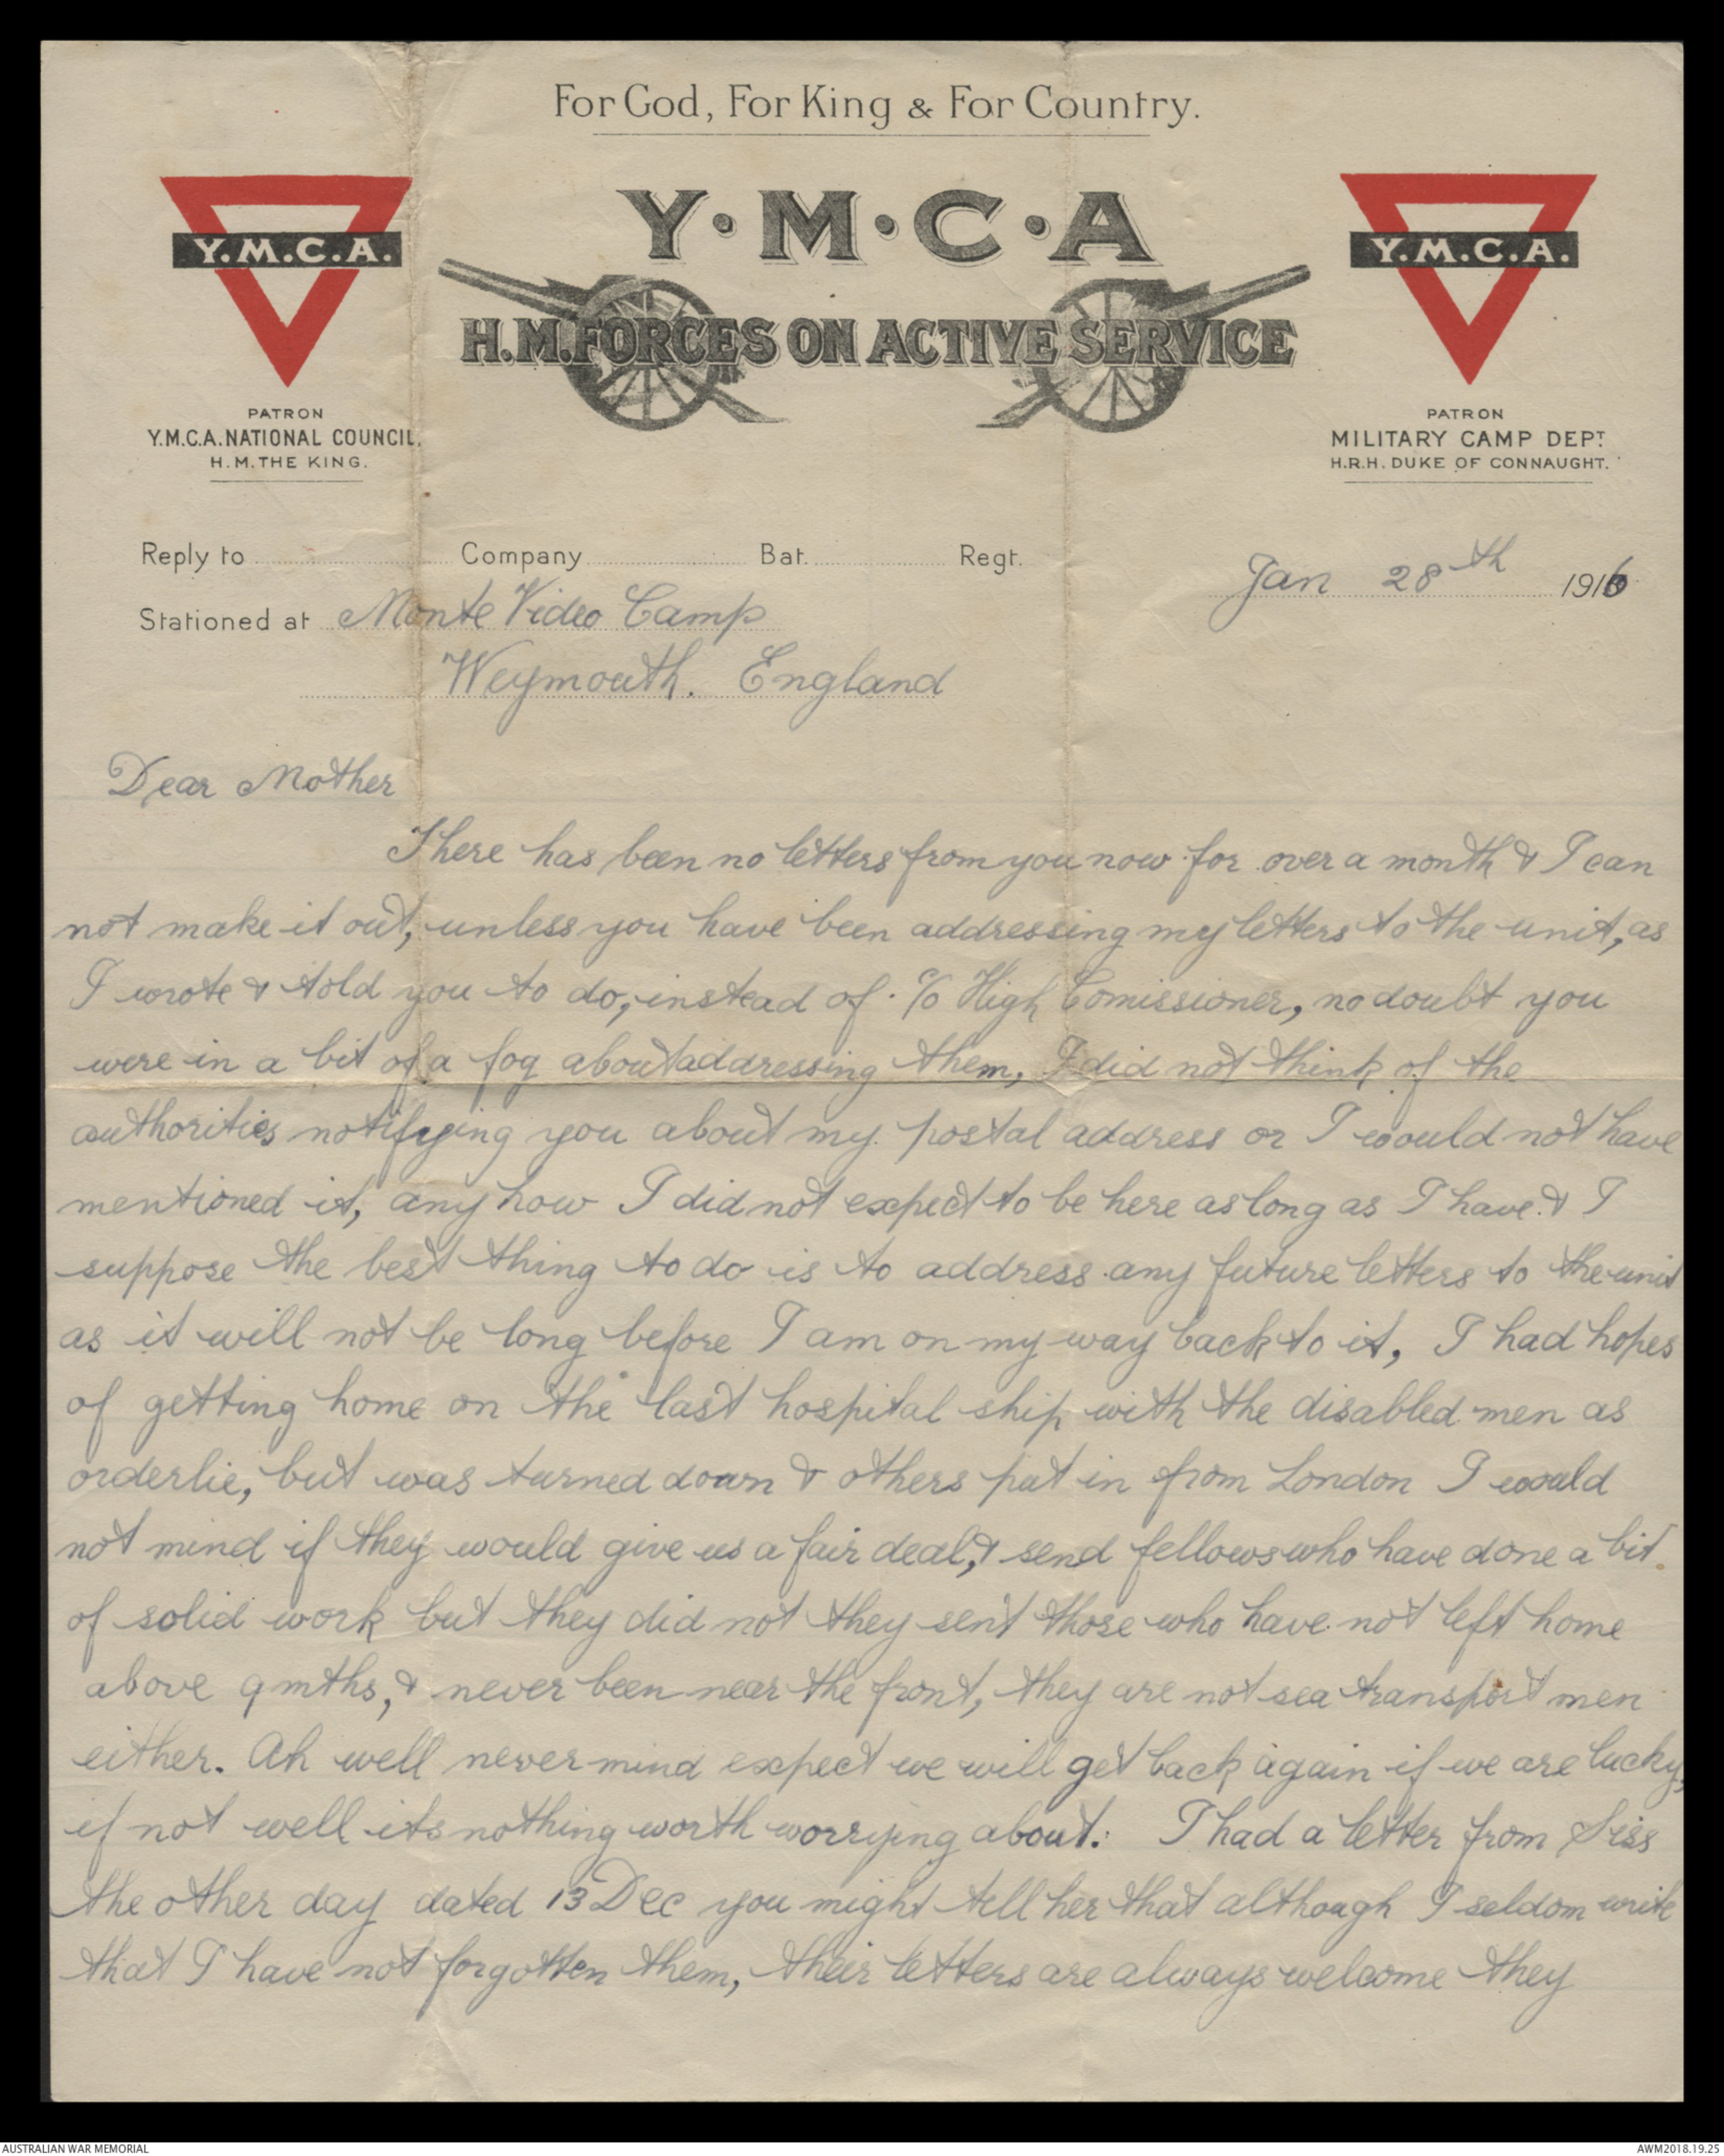 For God, For King & For Country.
Y.M.C.A.
Y·M·C·A
Y.M.C.A.
H.M. FORCES ON ACTIVE SERVICE
PATRON
Y.M.C.A. NATIONAL COUNCIL.
H.M. THE KING.
PATRON
MILITARY CAMP DEPT.
H.R.H. DUKE OF CONNAUGHT.
Reply to Company Bat. Regt.
Jan 28th 1916
Stationed at Monte Video Camp
Weymouth. England
Dear Mother
There has been no letters from you now for over a month & I can
not make it out, unless you have been addressing my letters to the unit, as
I wrote & told you to do, instead of c/o High Comissioner, no doubt you
were in a bit of a fog about addressing them, I did not think of the
authorities notifying you about my postal address or I would not have
mentioned it, any how I did not expect to be here as long as I have & I
suppose the best thing to do is to address any future letters to the unit
as it will not be long before I am on my way back to it, I had hopes
of getting home on the last hospital ship with the disabled men as
orderlie, but was turned down & others put in from London I would
not mind if they would give us a fair deal, & send fellows who have done a bit
of solid work but they did not they sent those who have not left home
above 9 mths, & never been near the front, they are not sea transport men
either. Ah well never mind expect we will get back again if we are lucky,
if not well its nothing worth worrying about. I had a letter from Siss
the other day dated 13 Dec you might tell her that although I seldom write
that I have not forgotten them, their letters are always welcome they
AUSTRALIAN WAR MEMORIAL
AWM2018.19.25